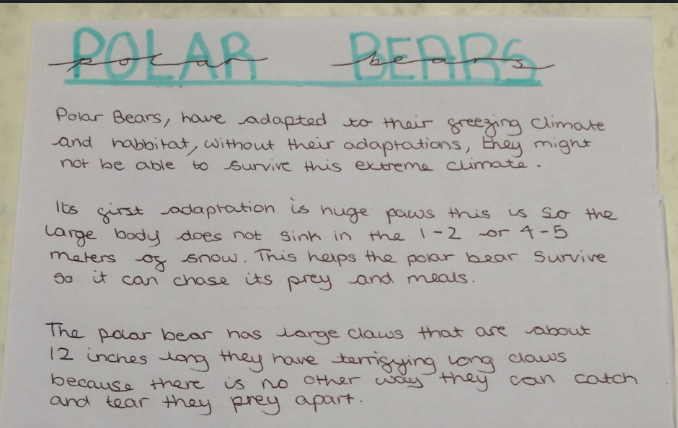 POLAR BEARS
polar bears
Polar Bears, have adapted to their freezing climate
and habbitat, without their adaptations, they might
not be able to survive this extreme climate.
Its first adaptation is huge paws this is so the
large body does not sink in the 1-2 or 4-5
meters of snow. This helps the polar bear survive
so it can chase its prey and meals.
The polar bear has large claws that are about
12 inches long they have terrifying long claws
because there is no other way they can catch
and tear they prey apart.